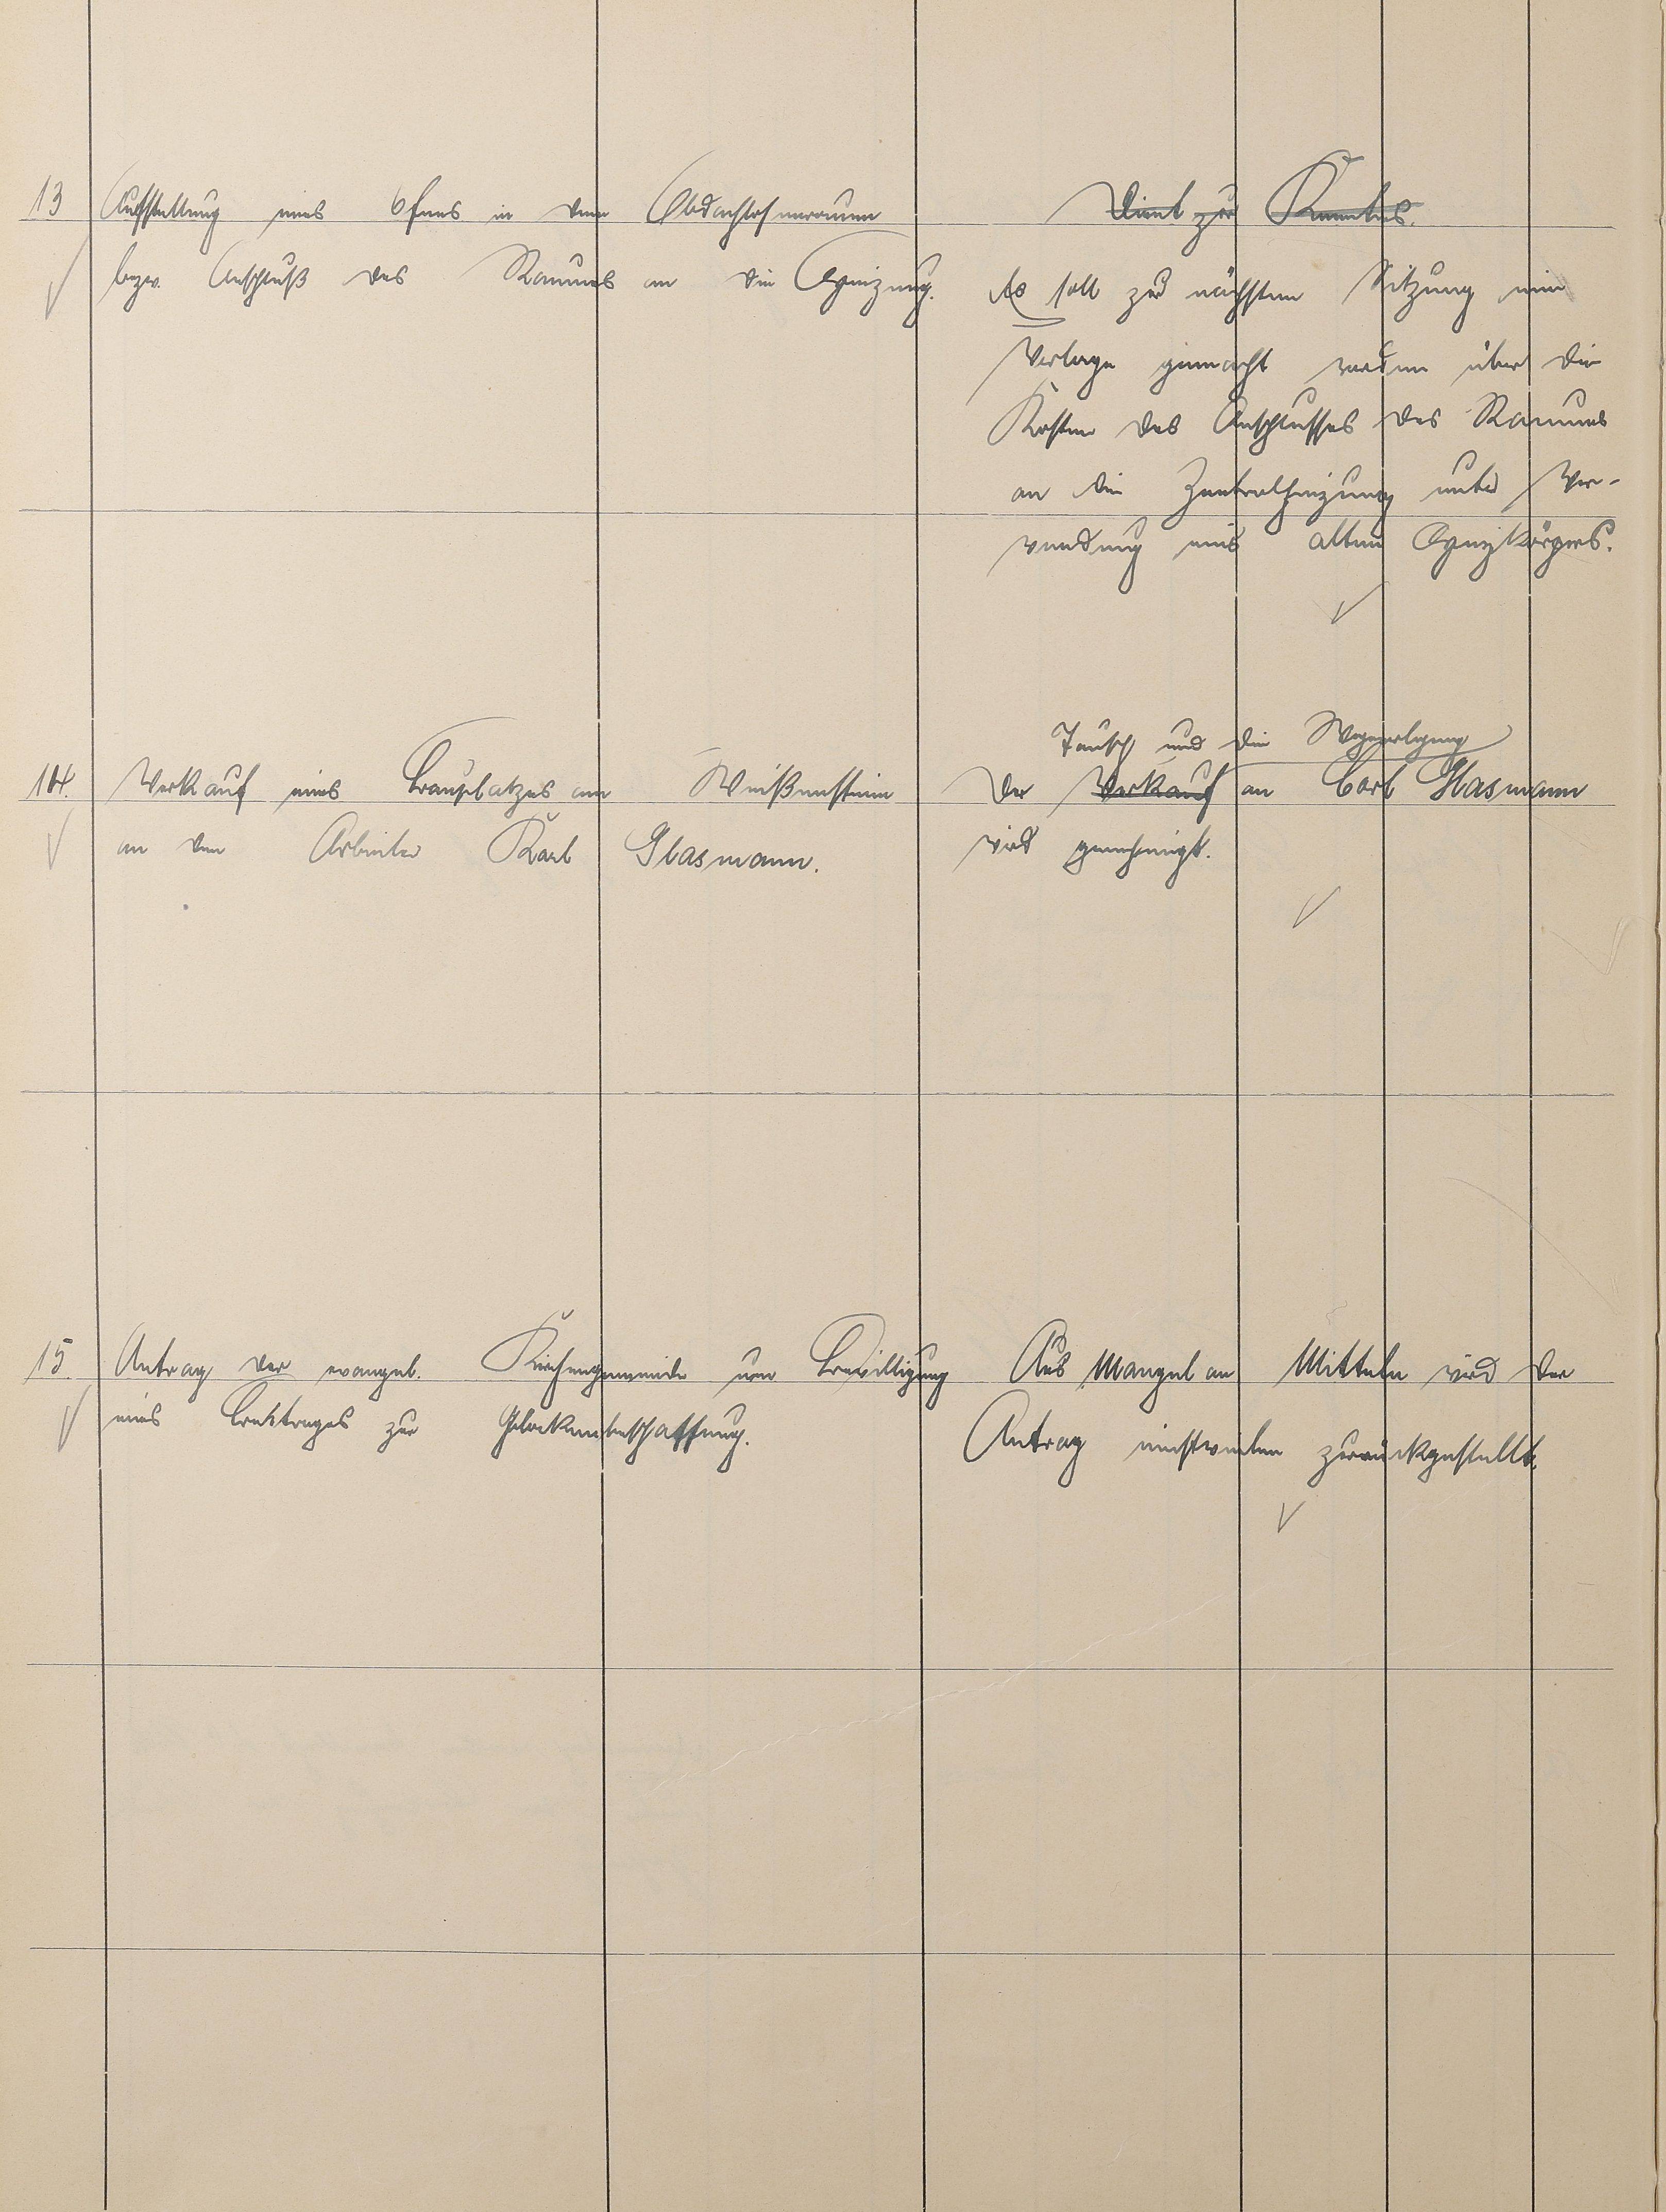 13 Aufstellung eines Ofens in dem Obdachlosenraum
bezw. Anschluß des Raumes an die Heizung.
Dient zur Kenntnis.
Es soll zur nächsten Sitzung eine
Vorlage gemacht werden über die
Kosten des Anschlusses des Raumes
an die Zentralheizung unter Ver-
wendung eines alten Heizkörpers.
14. Verkauf eines Bauplatzes am Weißenstein
an den Arbeiter Karl Glasmann.
Tausch und die Wegeverlegung
Der Verkauf an Carl Glasmann
wird genehmigt.
15. Antrag der evangel. Kirchengemeinde um Bewilligung
eines Beitrages zur Glockenbeschaffung.
Aus Mangel an Mitteln wird der
Antrag einstweilen zurückgestellt.